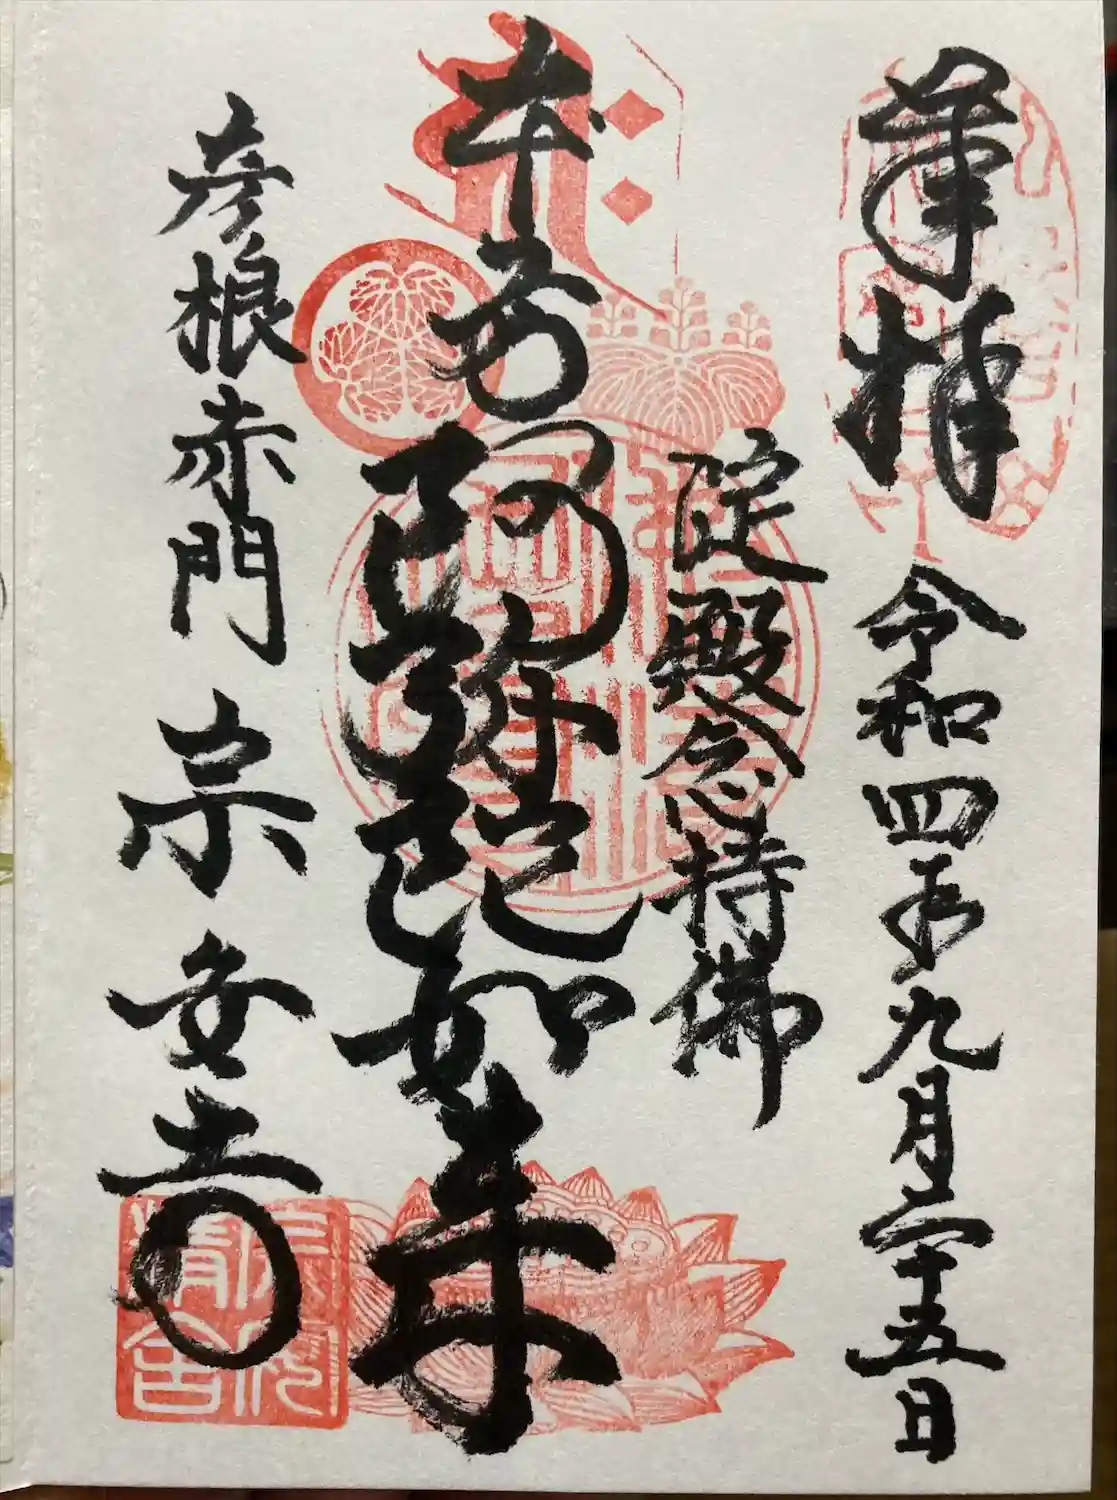 奉拝
令和四年九月二十五日
淀殿念持佛
本尊 阿弥陀如来
彦根赤門
宗安寺